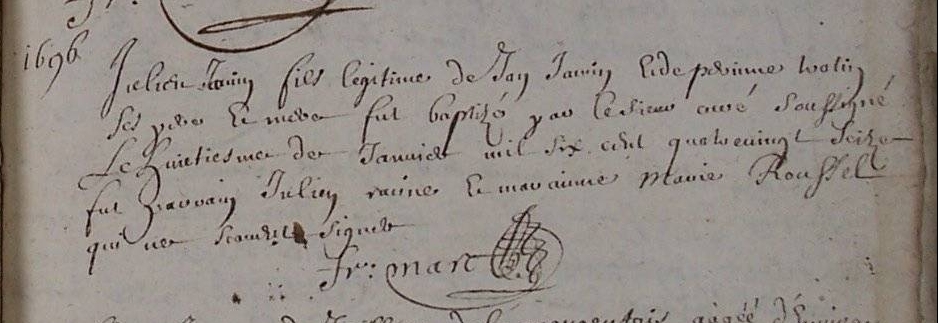 fr:
1696
Julien Janin fils legitime de Jan Janin et de perinne
ses pere et mere fut baptizé par le sieur curé soussigné
Le huictiesme de Janvier mil six cent quatrevingt seize
fut parrain Julien et maraine Marie Roussel
qui ne scavent signer
fr: marc